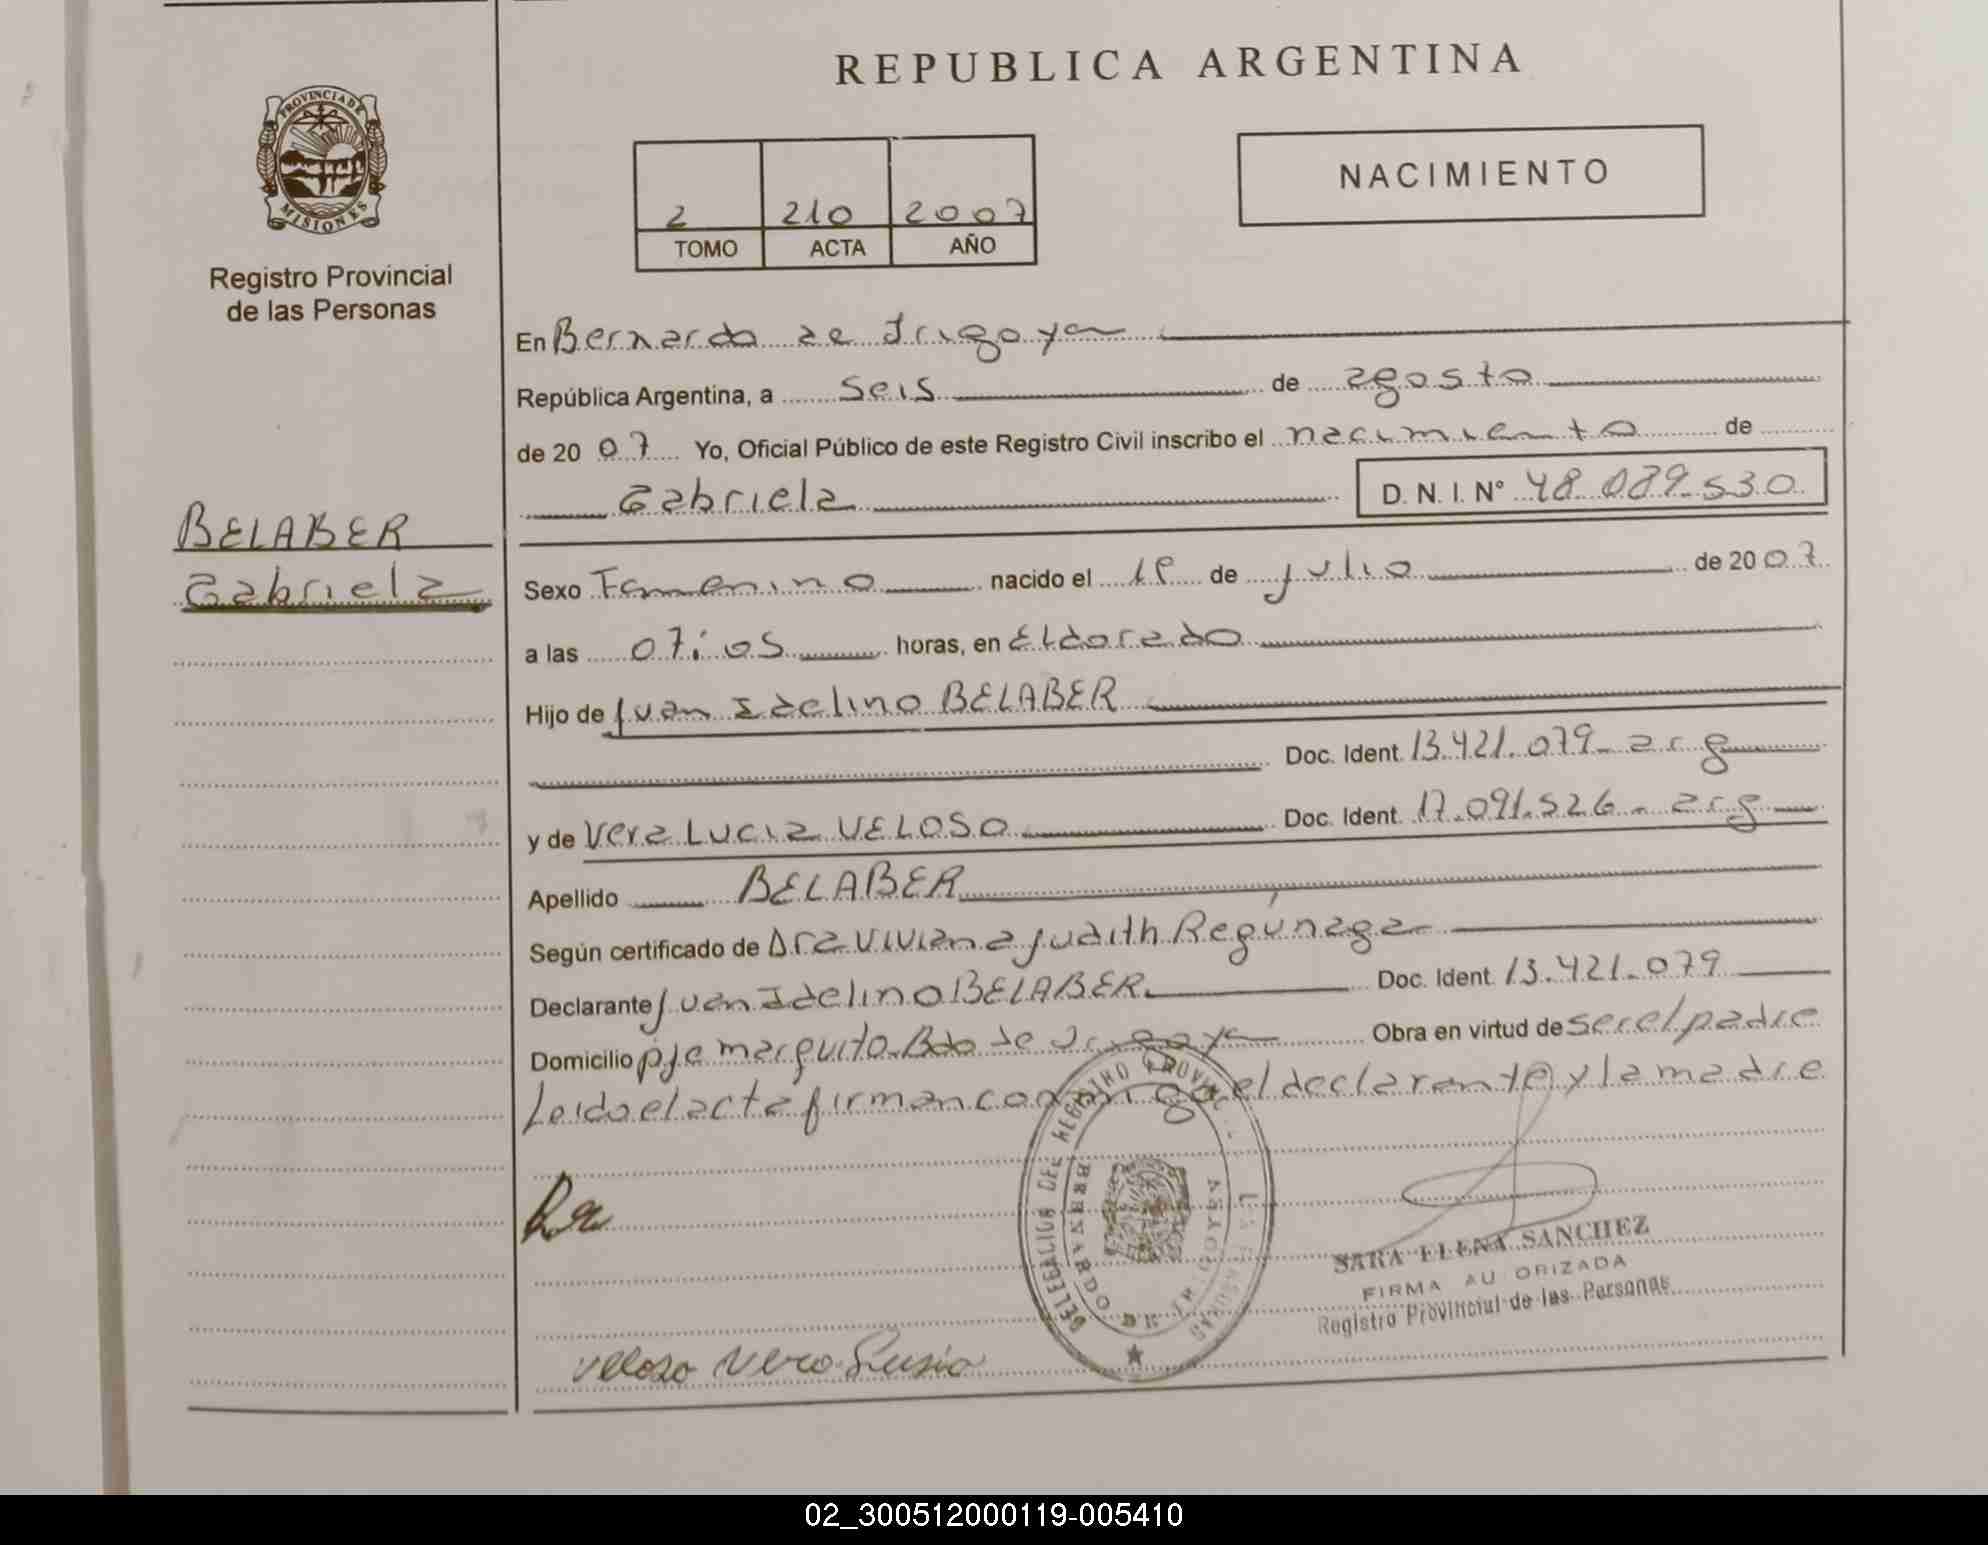 REPUBLICA ARGENTINA
PROVINCIA DE
MISIONES
Registro Provincial
de las Personas
2 210 2007
TOMO ACTA AÑO
NACIMIENTO
En Bernardo de Irigoyen
República Argentina, a seis de agosto
de 2007 Yo, Oficial Público de este Registro Civil inscribo el nacimiento de
Gabriela D. N. I. Nº 48.089.530
BELABER
Gabriela
Sexo Femenino nacido el 1º de julio de 2007
a las 07:05 horas, en Eldorado
Hijo de Juan Idelino BELABER
Doc. Ident. 13.421.079- arg
y de Vera Lucia VELOSO Doc. Ident. 17.091.526- arg
Apellido BELABER
Según certificado de Dra Viviana Judith Regúnaga
Declarante Juan Idelino BELABER Doc. Ident. 13.421.079
Domicilio pje marquito. Bdo de Irigoyen Obra en virtud de ser el padre
Leida el acta firman conmigo el declarante y la madre
DELEGACION DEL REGISTRO PROVINCIAL
BERNARDO DE
SARA ELENA SANCHEZ
FIRMA AUTORIZADA
Registro Provincial de las Personas
Velloso Vera Lusia
02_300512000119-005410